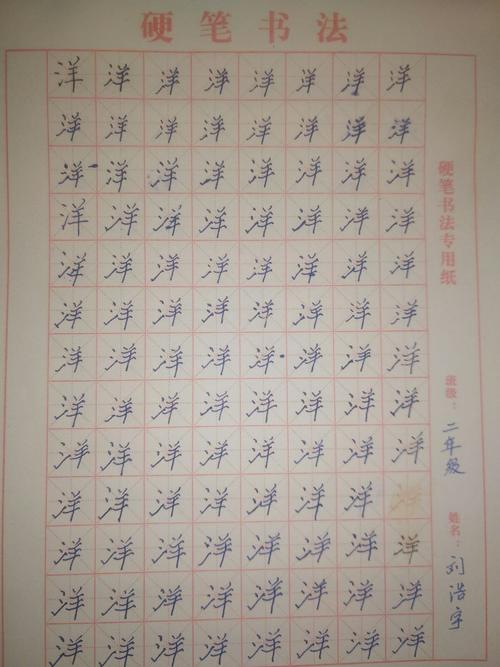 硬笔书法
洋洋洋洋洋洋洋洋
洋洋洋洋洋洋洋洋
洋洋洋洋洋洋洋洋
洋洋洋洋洋洋洋洋
洋洋洋洋洋洋洋洋
洋洋洋洋洋洋洋洋
洋洋洋洋洋洋洋洋
洋洋洋洋洋洋洋洋
洋洋洋洋洋洋洋洋
洋洋洋洋洋洋洋洋
洋洋洋洋洋洋洋洋
洋洋洋洋洋洋洋洋
洋洋洋洋洋洋洋洋
硬笔书法专用纸
班级：二年级
姓名：刘浩宇